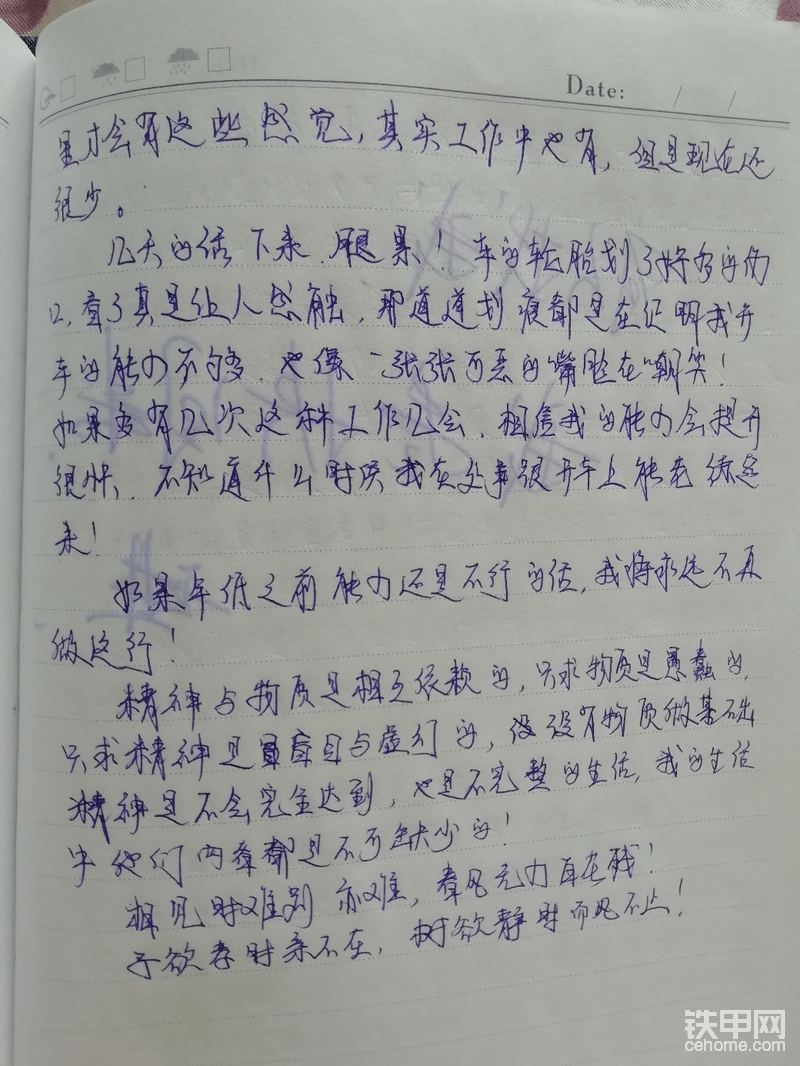 Date: / /
里才会有这些感觉,其实工作中也有,但是现在还
很少。
几天的活下来 果!车的轮胎划了好多的伤
口,看了真是让人感触,那道道划痕都是在证明我开
车的能力不够,也像一张张可恶的嘴脸在嘲笑!
如果多有几次这种工作几会,相信我的能力会提升
很快,不知道什么时候我在处事跟开车上能老练起
来!
如果年低之前能力还是不行的话,我将永远不再
做这行!
精神与物质是相互依赖的,只求物质是愚蠢的,
只求精神是盲目与虚幻的,没有物质做基础
精神是不会完全达到,也是不完整的生活,我的生活
中他们两者都是不可缺少的!
相见时难别亦难,春风无力百花残!
子欲孝时亲不在,树欲静时而风不止!
铁甲网
cehome.com